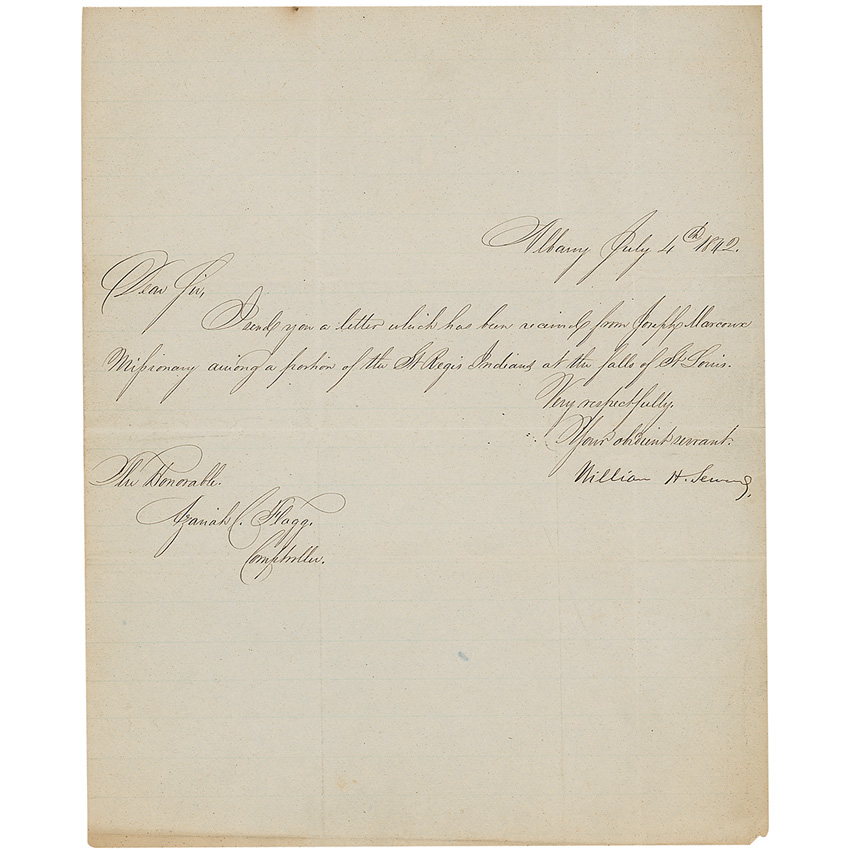 Albany July 4th 1842.
Dear Sir,
I send you a letter which has been received from Joseph Marcoux
Missionary among a portion of the St Regis Indians at the falls of St Louis.
Very respectfully.
Your obedient servant.
William H. Seward.
The Honorable.
Azariah C. Flagg.
Comptroller.